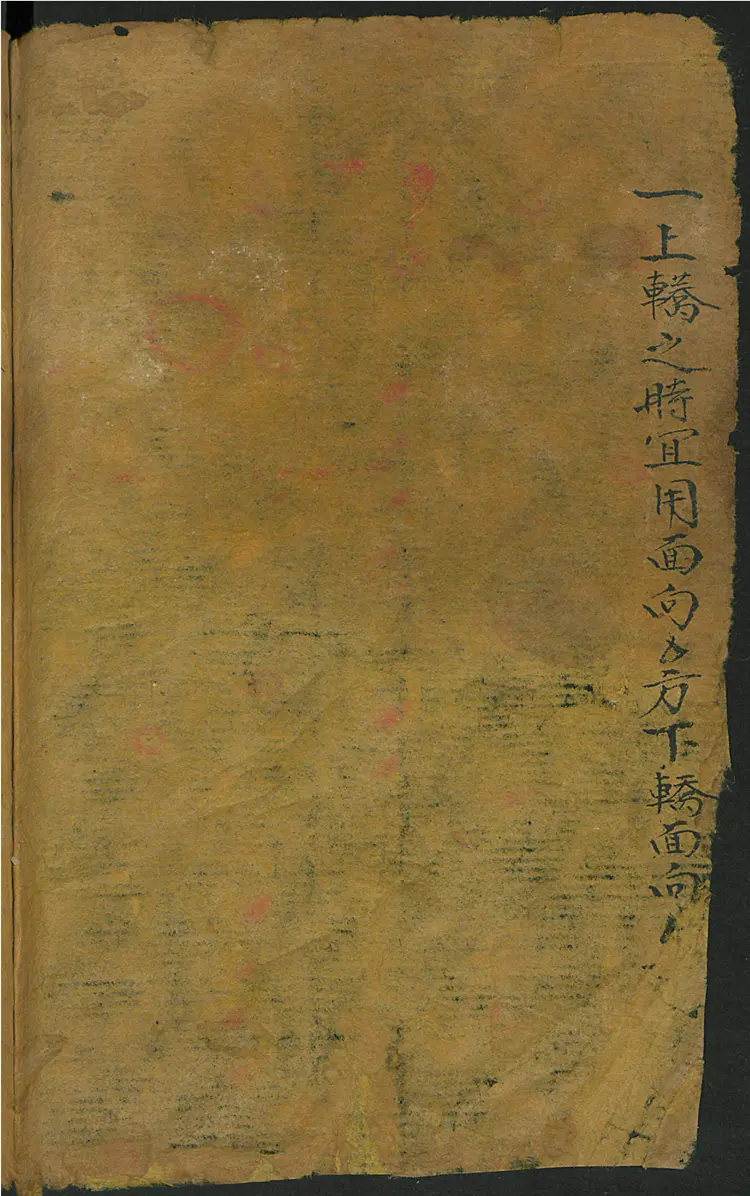 一上轎之時宜用面向厶方下轎面向厶